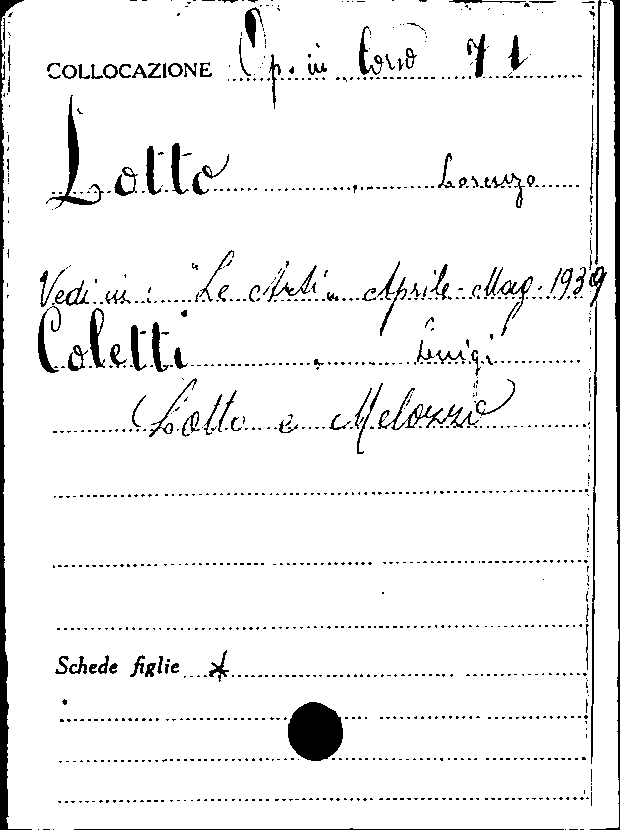 COLLOCAZIONE Op. in Corso 71
Lotto , Lorenzo
Vedi in : "Le Arti" Aprile-Mag. 1939
Coletti , Luigi
Lotto e Melozzo
Schede figlie *